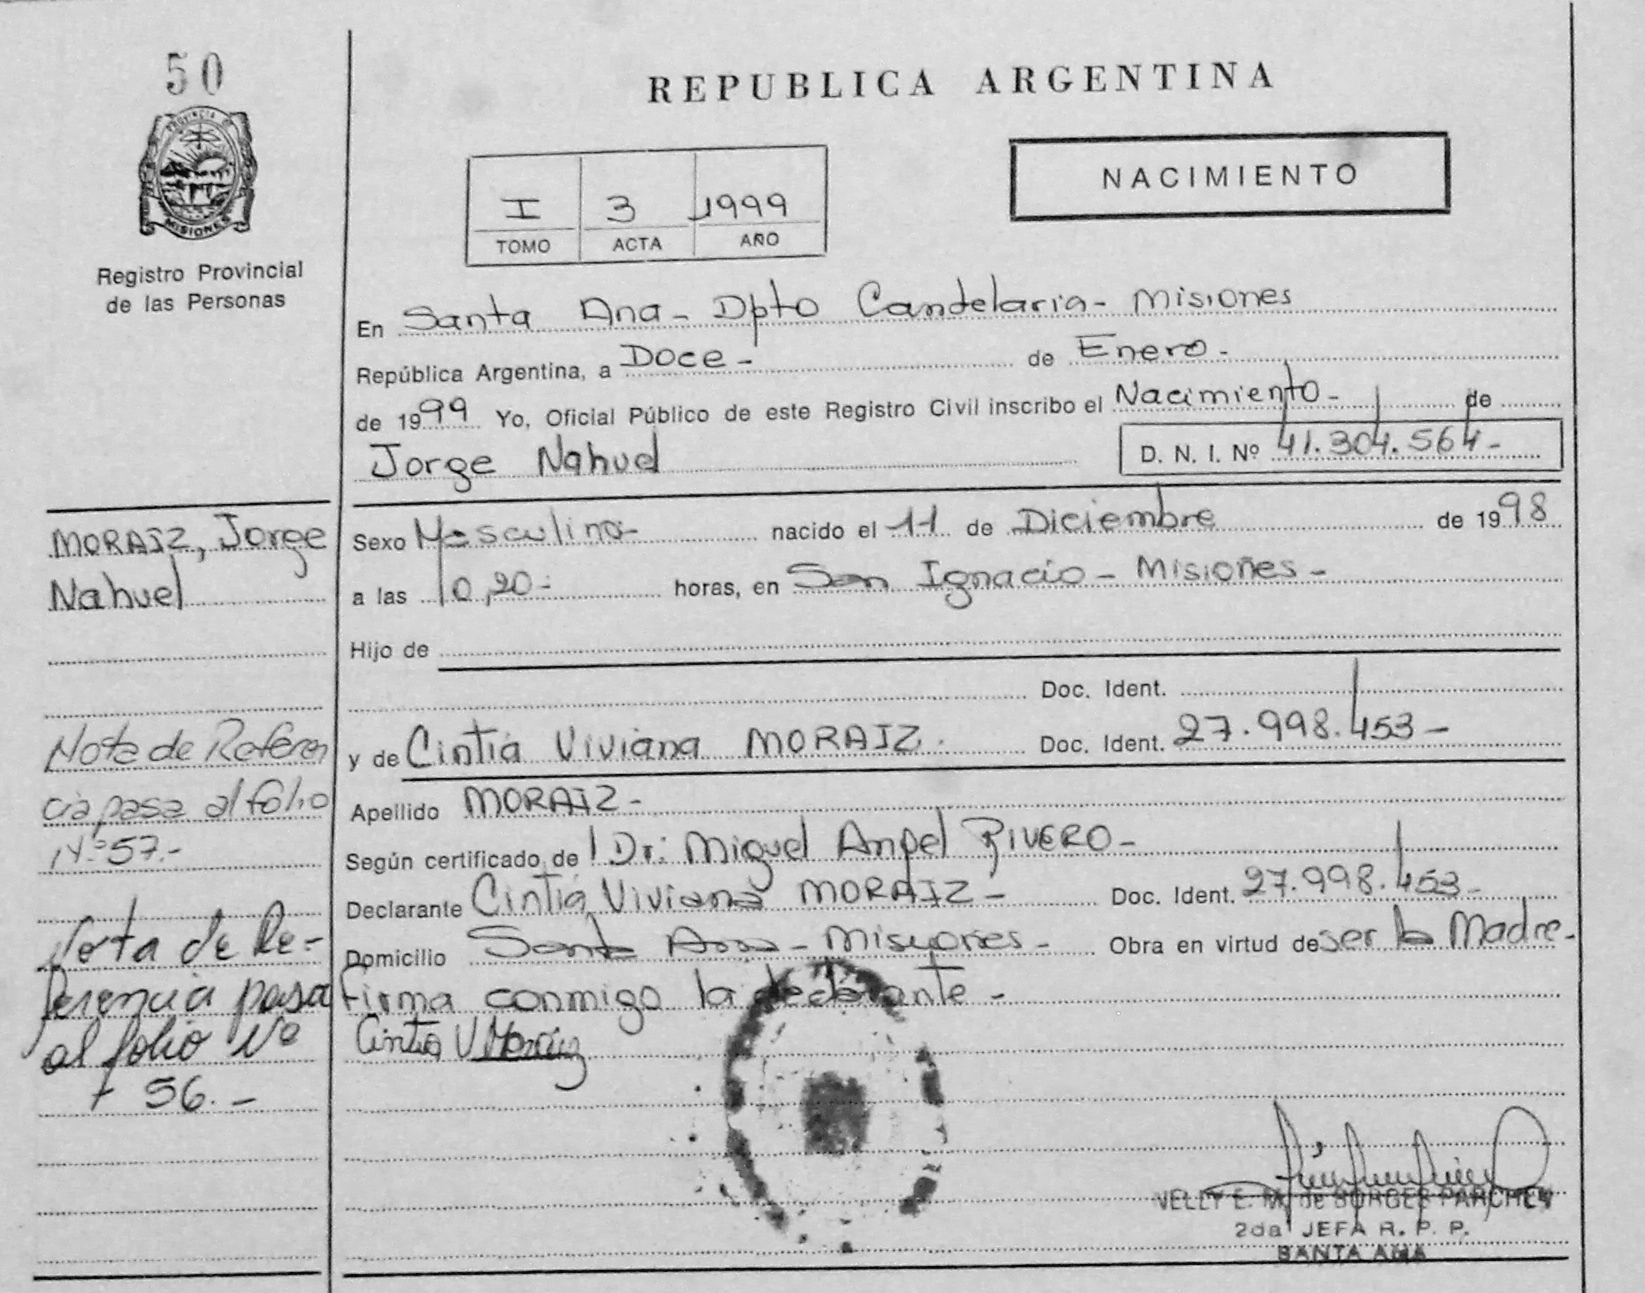 50
PROVINCIA DE
MISIONES
Registro Provincial
de las Personas
REPUBLICA ARGENTINA
I 3 1999
TOMO ACTA AÑO
NACIMIENTO
En Santa Ana - Dpto Candelaria - Misiones
República Argentina, a Doce - de Enero -
de 1999 Yo, Oficial Público de este Registro Civil inscribo el Nacimiento - de
Jorge Nahuel D. N. I. Nº 41.304.564 -
MORAIZ, Jorge
Nahuel
Sexo Masculino - nacido el 11 de Diciembre de 1998
a las 10,20 - horas, en San Ignacio - Misiones -
Hijo de
Doc. Ident.
y de Cintia Viviana MORAIZ. Doc. Ident. 27.998.453 -
Apellido MORAIZ -
Según certificado de l Dr: Miguel Angel RIVERO -
Declarante Cintia Viviana MORAIZ - Doc. Ident. 27.998.453 -
Domicilio Santa Ana - Misiones - Obra en virtud de ser la Madre -
Firma conmigo la declarante -
Cintia V Moraiz
Nota de Referen
cia pasa al folio
Nº 57.-
Nota de Re-
ferencia pasa
al folio Nº
56. -
NELLY E. M. de BORGES PARCHEN
2da JEFA R. P. P.
SANTA ANA